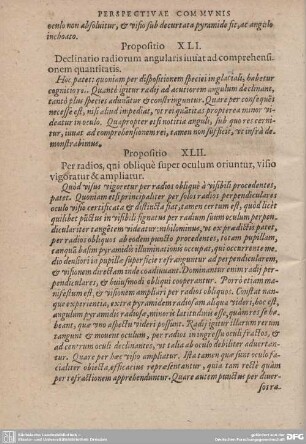 PERSPECTIVAE COMMVNIS
oculo non absoluitur, & visio sub decurtata pyramide fit, ac angulo
inchoato.
Propositio XLI.
Declinatio radiorum angularis iuuat ad comprehensi-
onem quantitatis.
Hoc patet: quoniam per dispositionem speciei in glaciali, habetur
cognitio rei. Quantò igitur radij ad acutiorem angulum declinant,
tantò plus species adunatur & constringuntur. Quare per consequẽs
necesse est, nisi aliud impediat, vt res quãtitas propterea minor vi-
deatur in oculo. Quapropter etsi notitia anguli, sub quo res cerni-
tur, iuuat ad comprehensionem rei, tamen non sufficit, vt infrà de-
monstrabimus.
Propositio XLII.
Per radios, qui obliquè super oculum oriuntur, visio
vigoratur & ampliatur.
Quòd visus vigoretur per radios obliquè à visibili procedentes,
patet. Quoniam etsi principaliter per solos radios perpendiculares
oculo visio certificata & distincta fiat, tamen certum est, quòd licèt
quilibet pũctus in visibili signatus per radium suum oculum perpen-
diculariter tangẽtem videatur: nihilominus, vt ex prædictis patet,
per radios obliquos ab eodem puncto procedentes, totam pupillam,
tanquàm basim pyramidis illuminationis occupat, qui occurrente me-
dio densiori in pupillæ superficie refranguntur ad perpendicularem,
& visionem directam inde coadiuuant. Dominantur enim radij per-
pendiculares, & huiusmodi obliqui cooperantur. Porrò etiam ma-
nifestum est, & visionem ampliari per radios obliquos. Constat nan-
que experientia, extra pyramidem radiosam aliqua videri, hoc est,
angulum pyramidis radiosæ, minoris latitudinis esse, quàm res se ha-
beant, quæ vno aspectu videri possunt. Radij igitur illarum rerum
tangunt & mouent oculum, per radios in ingressu oculi fractos, &
ad centrum oculi declinantes, vt talia ab oculo debiliter aduertan-
tur. Quare per hæc visio ampliatur. Ista tamen quæ sunt oculo fa-
cialiter obiecta, efficacius repræsentantur, quia tam rectè quàm
per refractionem apprehenduntur. Quare autem punctum per diuer-
forra.